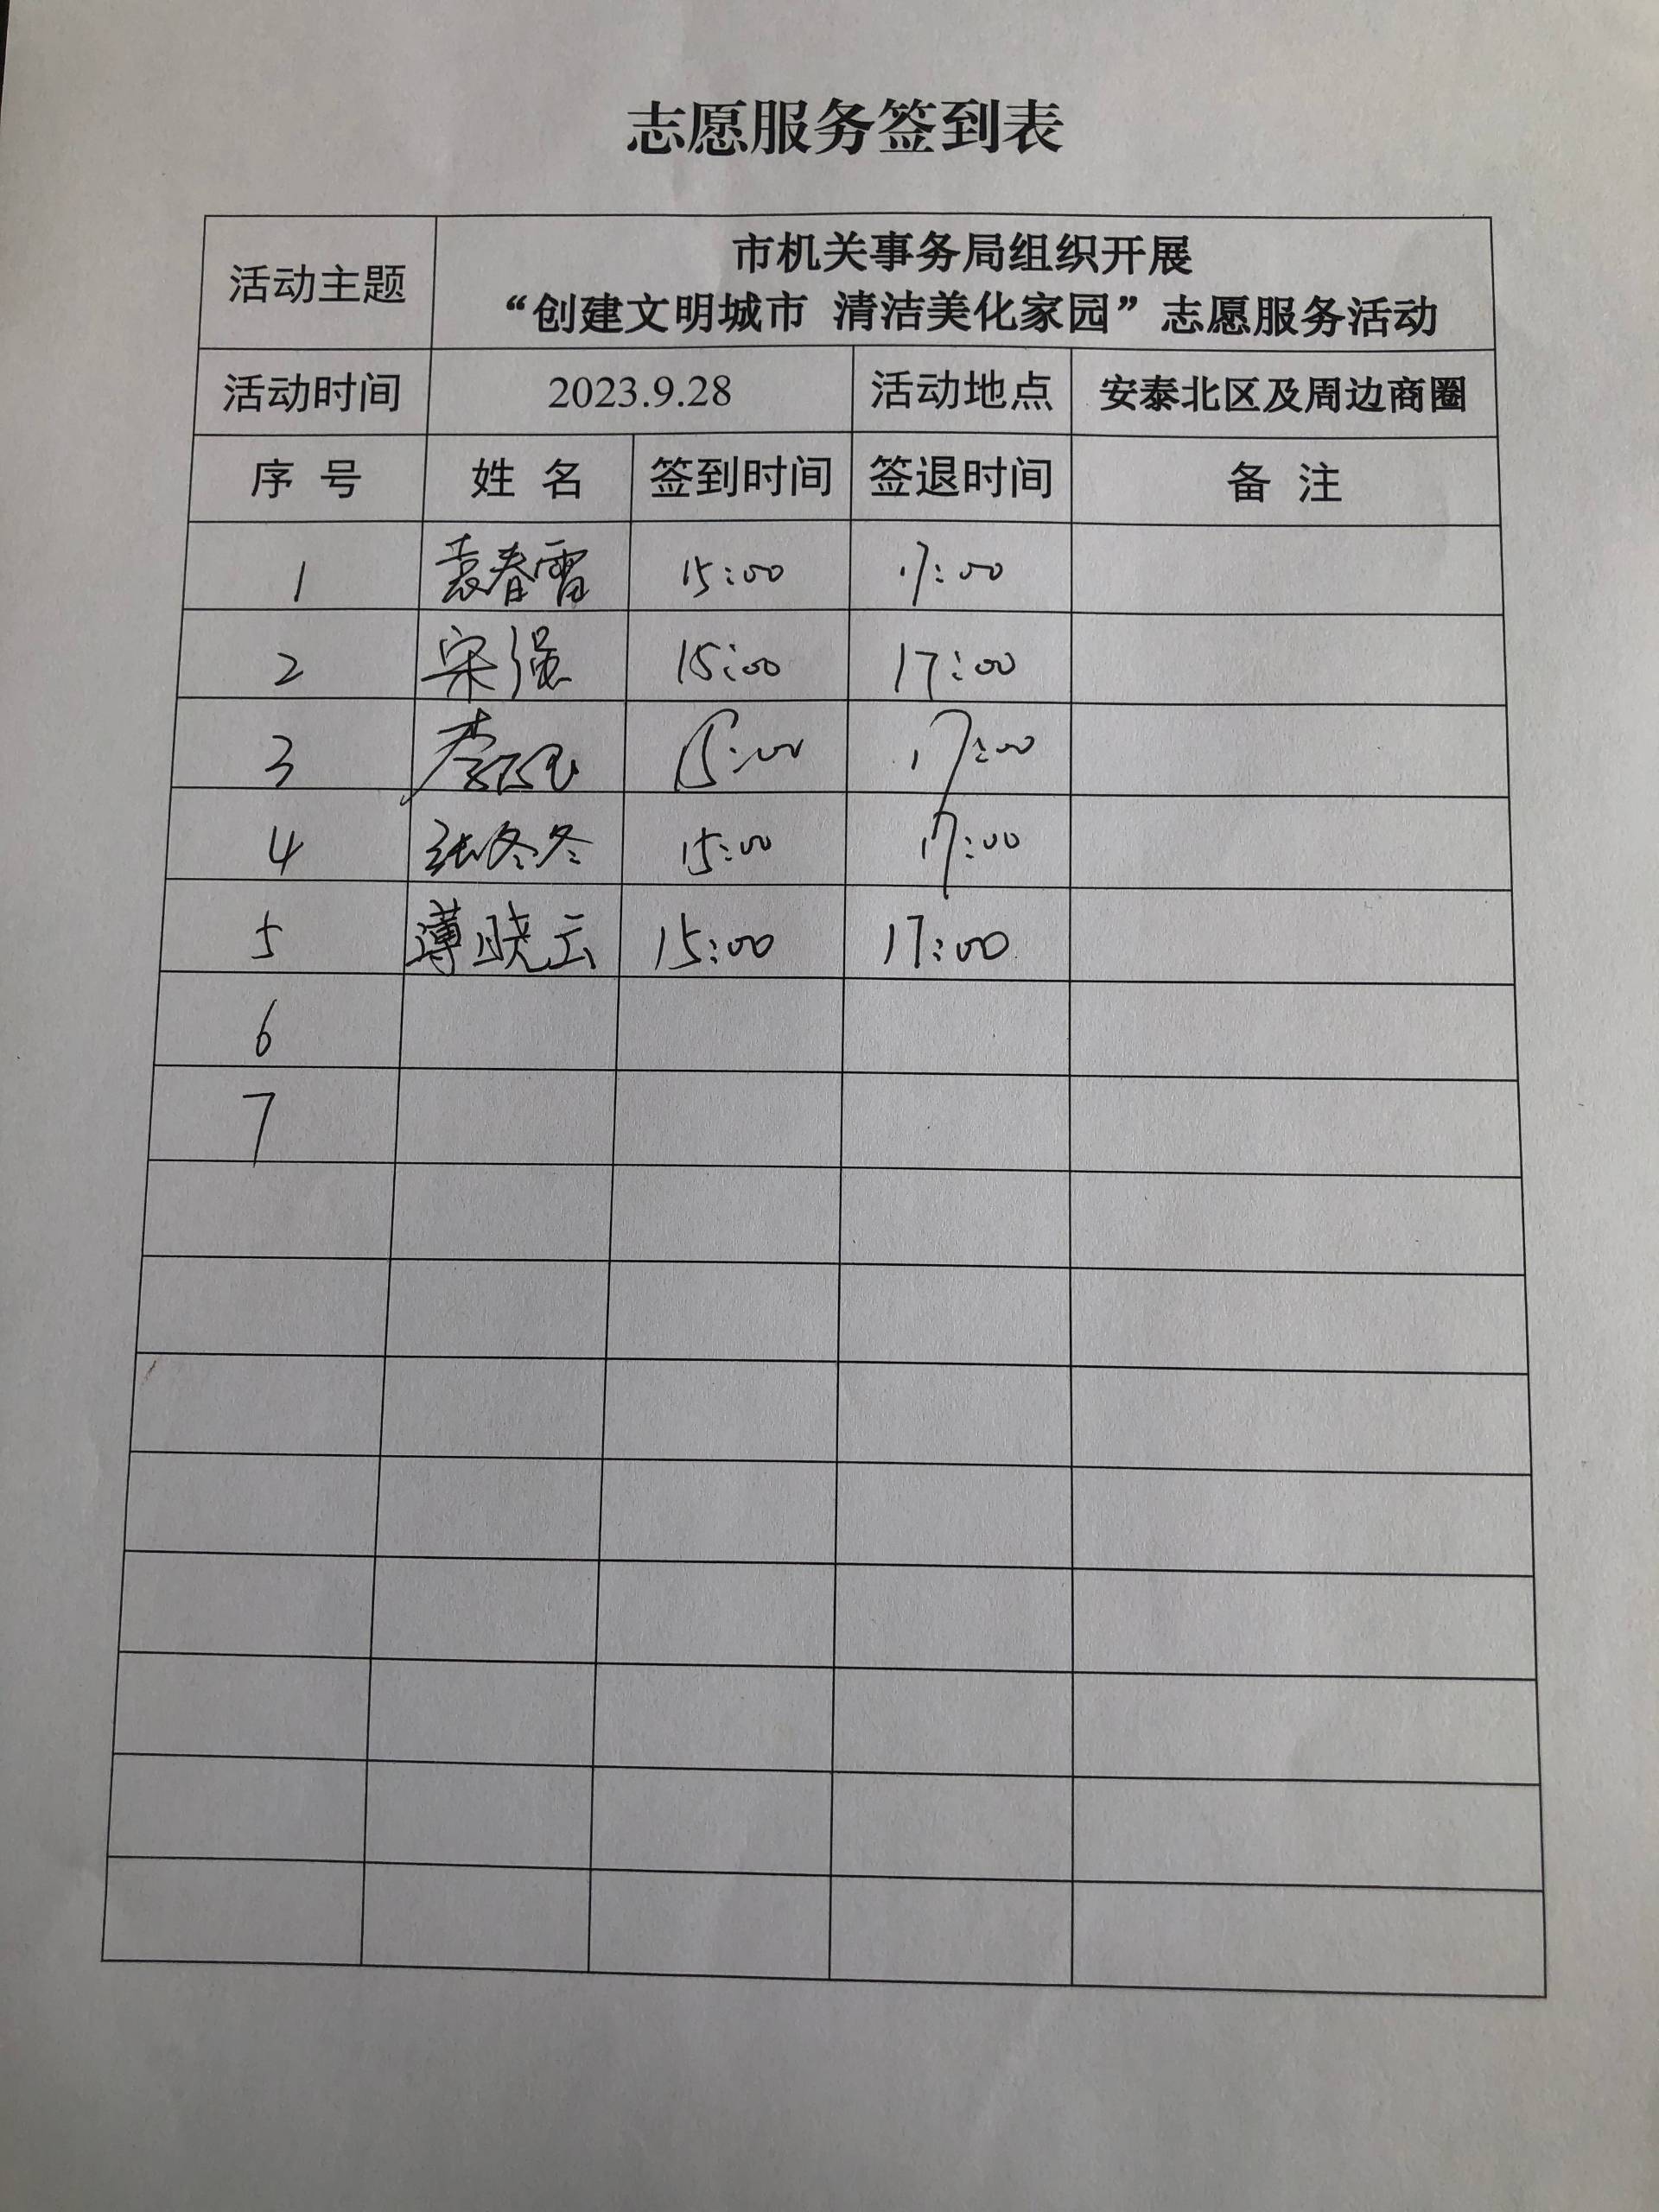 志愿服务签到表
活动主题
市机关事务局组织开展
“创建文明城市 清洁美化家园”志愿服务活动
活动时间 2023.9.28 活动地点 安泰北区及周边商圈
序 号 姓 名 签到时间 签退时间 备 注
1 袁春雷 15:00 17:00
2 宋强 15:00 17:00
3 李 15:00 17:00
4 张冬冬 15:00 17:00
5 薄晓云 15:00 17:00
6
7